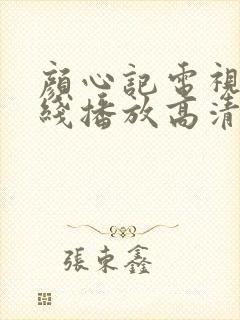 顔心記電視
綫播放高清
張東鑫